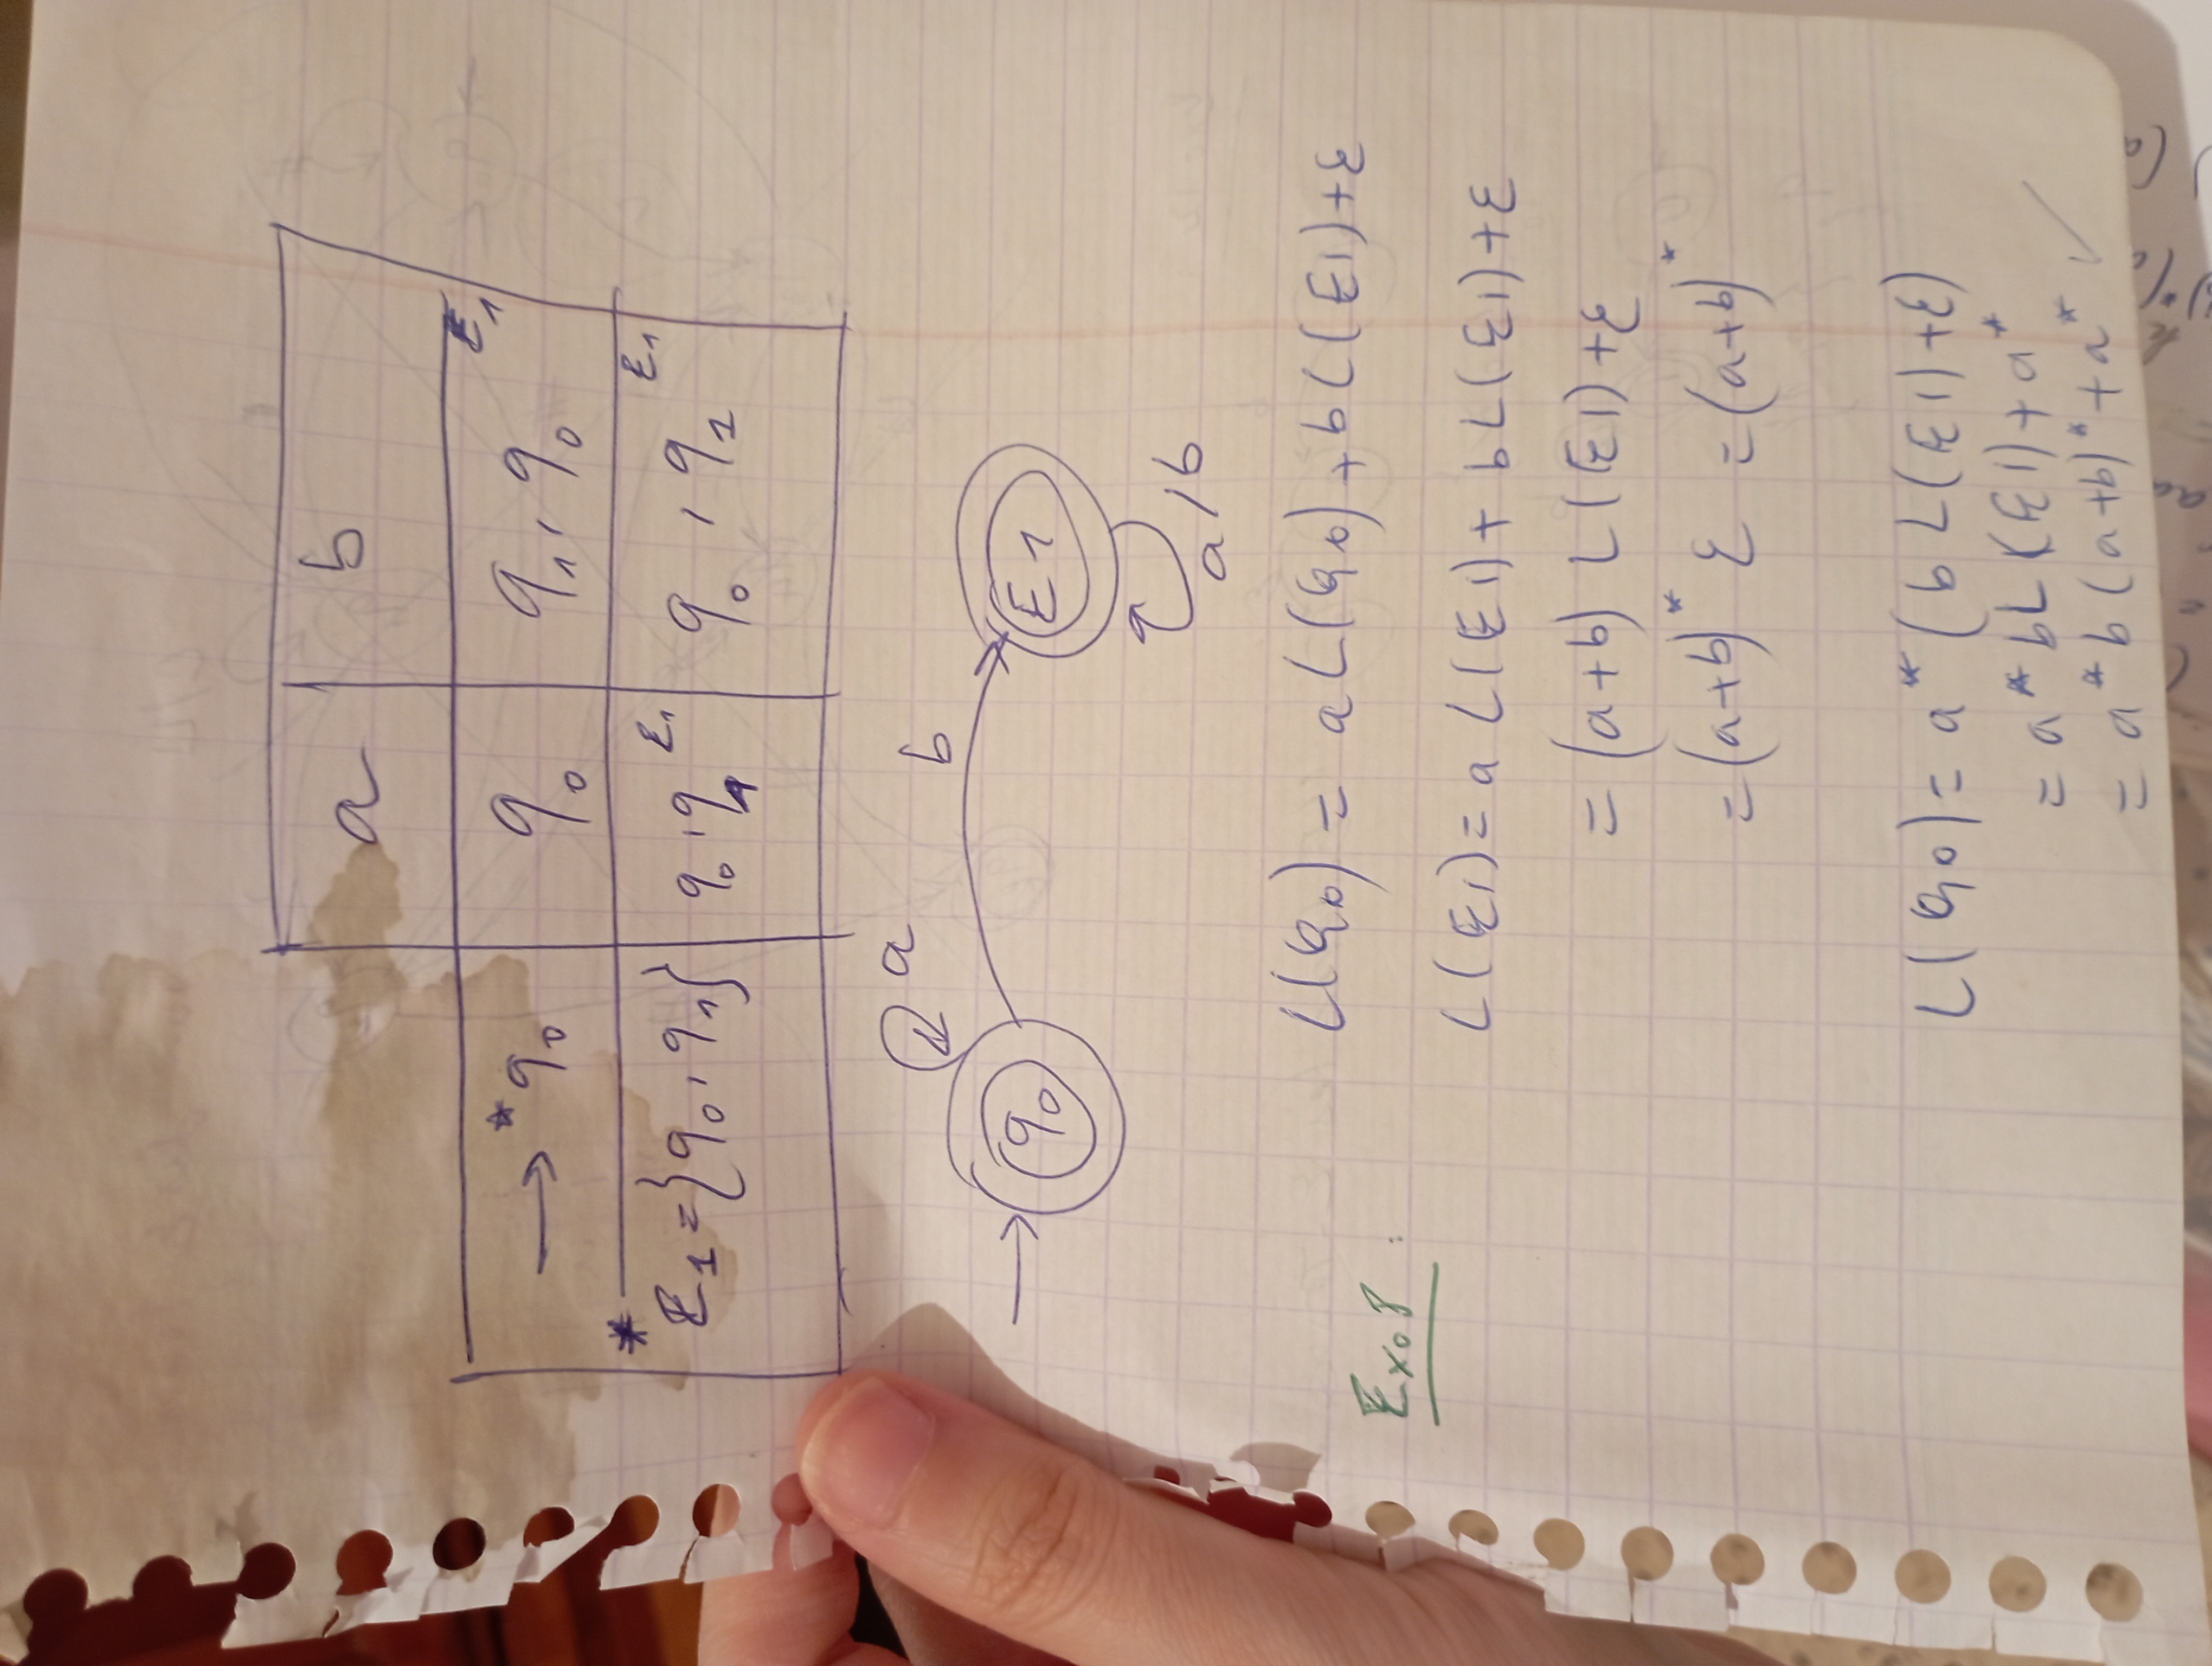 a b
→ *q₀ q₀ q₁, q₀ E₁
* E₁ = {q₀, q₁} q₀, q₁ E₁ q₀, q₁ E₁
a
b
→ q₀ E1
a, b
L(q₀) = aL(q₀) + bL(E1) + ε
Exo8 :
L(E1) = aL(E1) + bL(E1) + ε
= (a+b) L(E1) + ε
= (a+b)* ε = (a+b)*
L(q₀) = a* (bL(E1) + ε)
= a* bL(E1) + a*
= a* b(a+b)* + a* ✓